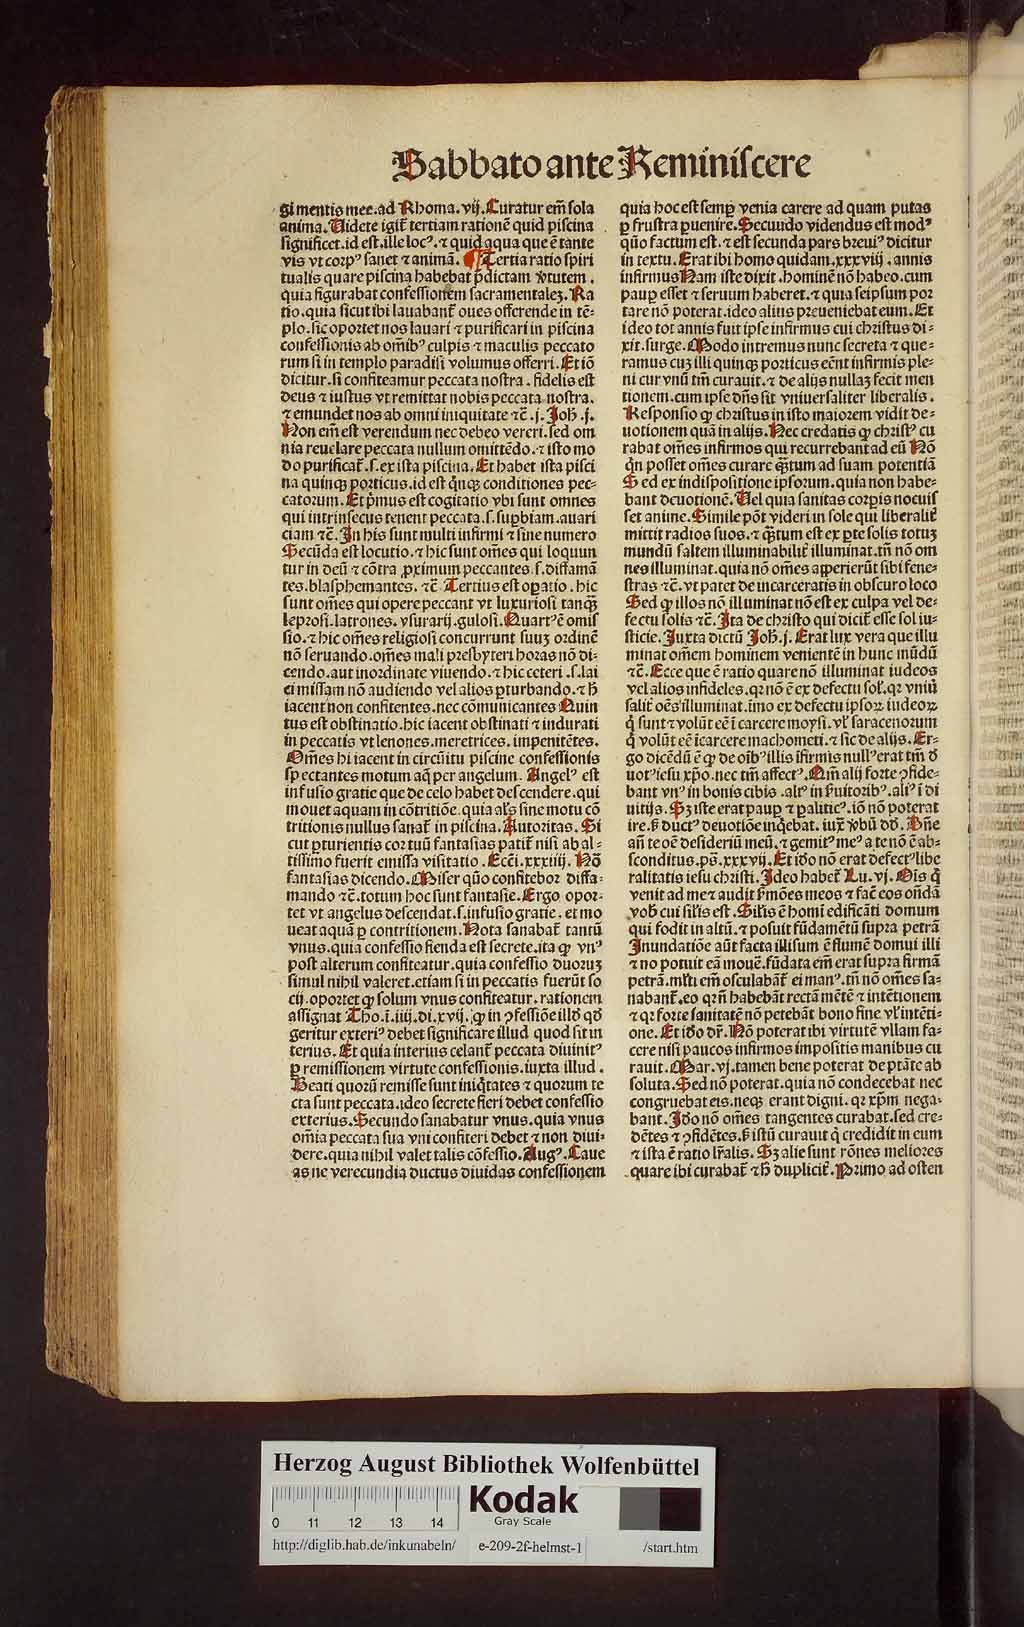 Sabbato ante Reminiscere
gi mentis mee. ad Rhoma. vij. Curatur em̄ sola
anima. Videte igit̄ tertiam rationē quid piscina
significet. id est. ille locꝰ. ⁊ quid aqua que ē tante
vis vt corpꝰ sanet ⁊ animā. ¶ Tertia ratio spiri
tualis quare piscina habebat p̄dictam v̓tutem.
quia figurabat confessionem sacramentalez. Ra
tio. quia sicut ibi lauabant̄ oues offerende in tē-
plo. sic oportet nos lauari ⁊ purificari in piscina
confessionis ab om̄ibꝰ culpis ⁊ maculis peccato
rum si in templo paradisi volumus offerri. Et iō
dicitur. si confiteamur peccata nostra. fidelis est
deus ⁊ iustus vt remittat nobis peccata nostra.
⁊ emundet nos ab omni iniquitate ⁊c̄. j. Joh̄. j.
Non em̄ est verendum nec debeo vereri. sed om
nia reuelare peccata nullum omittēdo. ⁊ isto mo
do purificat̄. s. ex ista piscina. Et habet ista pisci
na quinqꝫ porticus. id est q̓nqꝫ conditiones pec-
catorum. Et p̓mus est cogitatio vbi sunt omnes
qui intrinsecus tenent peccata. s. suꝑbiam. auari
ciam ⁊c̄. In his sunt multi infirmi ⁊ sine numero
Secūda est locutio. ⁊ hic sunt om̄es qui loquun
tur in deū ⁊ cōtra ꝓximum peccantes. s. diffamā
tes. blasphemantes. ⁊c̄ Tertius est oꝑatio. hic
sunt om̄es qui opere peccant vt luxuriosi tanqꝫ
leprosi. latrones. vsurarij. gulosi. Quartꝰ ē omis
sio. ⁊ hic om̄es religiosi concurrunt suuꝫ ordinē
nō seruando. om̄es mali presbyteri horas nō di-
cendo. aut inordinate viuendo. ⁊ hic ceteri .s. lai
ci missam nō audiendo vel alios ꝑturbando. ⁊ h̄
iacent non confitentes. nec cōmunicantes Quin
tus est obstinatio. hic iacent obstinati ⁊ indurati
in peccatis vt lenones. meretrices. impenitētes.
Om̄es hi iacent in circūitu piscine confessionis
spectantes motum aq̄ per angelum. Angelꝰ est
infusio gratie que de celo habet descendere. qui
mouet aquam in cōtritiōe. quia al's sine motu cō
tritionis nullus sanat̄ in piscina. Autoritas. Si
cut ꝑturientis cor tuū fantasias patit̄ nisi ab al-
tissimo fuerit emissa visitatio. Ecc̄i. xxxiiij. Nō
fantasias dicendo. Miser quō confitebor diffa-
mando ⁊c̄. totum hoc sunt fantasie. Ergo opor-
tet vt angelus descendat. s. infusio gratie. et mo
ueat aquā ꝑ contritionem. Nota sanabat̄ tantū
vnus. quia confessio fienda est secrete. ita ꝙ vnꝰ
post alterum confiteatur. quia confessio duoruꝫ
simul nihil valeret. etiam si in peccatis fuerūt so
cij. oportet ꝙ solum vnus confiteatur. rationem
assignat Tho. i. iiij. di. xvij. ꝙ in ꝯfessiōe illd̓ qd̓
geritur exteriꝰ debet significare illud quod fit in
terius. Et quia interius celant̄ peccata diuinitꝰ
ꝑ remissionem virtute confessionis. iuxta illud.
Beati quorū remisse sunt iniq̓tates ⁊ quorum te
cta sunt peccata. ideo secrete fieri debet confessio
exterius. Secundo sanabatur vnus. quia vnus
om̄ia peccata sua vni confiteri debet ⁊ non diui-
dere. quia nihil valet talis cōfessio. Augꝰ. Caue
as ne verecundia ductus diuidas confessionem
quia hoc est semꝑ venia carere ad quam putas
ꝑ frustra ꝑuenire. Secundo videndus est modꝰ
quō factum est. ⁊ est secunda pars breuiꝰ dicitur
in textu. Erat ibi homo quidam. xxxviij. annis
infirmus Nam iste dixit. hominē nō habeo. cum
pauꝑ esset ⁊ seruum haberet. ⁊ quia seipsum por
tare nō poterat. ideo alius preueniebat eum. Et
ideo tot annis fuit ipse infirmus cui christus di-
xit. surge. Modo intremus nunc secreta ⁊ que-
ramus cuꝫ illi quinqꝫ porticus eēnt infirmis ple-
ni cur vnū tm̄ curauit. ⁊ de alijs nullaꝫ fecit men
tionem. cum ipse dn̄s sit vniuersaliter liberalis.
Responsio ꝙ christus in isto maiorem vidit de-
uotionem quā in alijs. Nec credatis ꝙ christꝰ cu
rabat om̄es infirmos qui recurrebant ad eū Nō
q̓n posset om̄es curare qꝫtum ad suam potentiā
Sed ex indispositione ipsorum. quia non habe-
bant deuotionē. Vel quia sanitas corpis nocuis
set anime. Simile pōt videri in sole qui liberalit̄
mittit radios suos. ⁊ qꝫtum est ex ꝑte solis totuꝫ
mundū saltem illuminabilit̄ illuminat. tn̄ nō om
nes illuminat. quia nō om̄es apperierūt sibi fene-
stras ⁊c̄. vt patet de incarceratis in obscuro loco
Sed ꝙ illos nō illuminat nō est ex culpa vel de-
fectu solis ⁊c̄. Ita de christo qui dicit̄ esse sol iu-
sticie. Juxta dictū Joh̄. j. Erat lux vera que illu
minat om̄em hominem venientē in hunc mūdū
⁊c̄. Ecce que ē ratio quare nō illuminat iudeos
vel alios infideles. qꝛ nō ē ex defectu sol̓. qꝛ vniū
salit̄ oēs illuminat. īmo ex defectu ipsoꝝ iudeoꝝ
q̓ sunt ⁊ volūt eē ī carcere moysi. vl' saracenorum
q̓ volūt eē īcarcere machometi. ⁊ sic de alijs. Er-
go dicēdū ē ꝙ de oībꝰ illis īfirmis nullꝰ erat tm̄ d̓
uotꝰ iesu xp̄o. nec tm̄ affectꝰ. Qm̄ alij forte ꝯfide-
bant vnꝰ in bonis cibis. alꝰ in s̓uitoribꝰ. aliꝰ ī di
uitijs. Sꝫ iste erat pauꝑ ⁊ ꝑaliticꝰ. iō nō poterat
ire. s̓ ductꝰ deuotiōe inq̓ebat. iux̄ v̓bū dd̓. Dn̄e
an̄ te oē desideriū meū. ⁊ gemitꝰ meꝰ a te nō ē ab-
sconditus. ps̄. xxxvij. Et id̓o nō erat defectꝰ libe
ralitatis iesu christi. Ideo habet̄ Lu. vj. Ois q̓
venit ad me ⁊ audit s̓mōes meos ⁊ fac̄ eos ondā
vob̓ cui sil'is est. Sil'is ē homī edificāti domum
qui fodit in altū. ⁊ posuit fūdamētū supra petrā
Inundatiōe aūt facta illisum ē flumē domui illi
⁊ no potuit eā mouē. fūdata em̄ erat supra firmā
petrā. ml'ti em̄ osculabāt̄ ei manꝰ. tn̄ nō om̄es sa-
nabant̄. eo qꝛñ habebāt rectā mētē ⁊ intētionem
⁊ qꝛ forte sanitatē nō petebāt bono fine vl' intēti-
one. Et id̓o dr̄. Nō poterat ibi virtutē vllam fa-
cere nisi paucos infirmos impositis manibus cu
rauit. Mar. vj. tamen bene poterat de ptāte ab
soluta. Sed nō poterat. quia nō condecebat nec
congruebat eis. neqꝫ erant digni. qꝛ xp̄m nega-
bant. Id̓o nō om̄es tangentes curabat. sed cre-
dētes ⁊ ꝯfidētes. s̓ istū curauit q̓ credidit in eum
⁊ ista ē ratio lr̄alis. Sꝫ alie sunt rōnes meliores
quare ibi curabat̄ ⁊ h̄ duplicit̄. Primo ad osten
Herzog August Bibliothek Wolfenbüttel
0 11 12 13 14
Kodak
Gray Scale
http://diglib.hab.de/inkunabeln/ e-209-2f-helmst-1 /start.htm